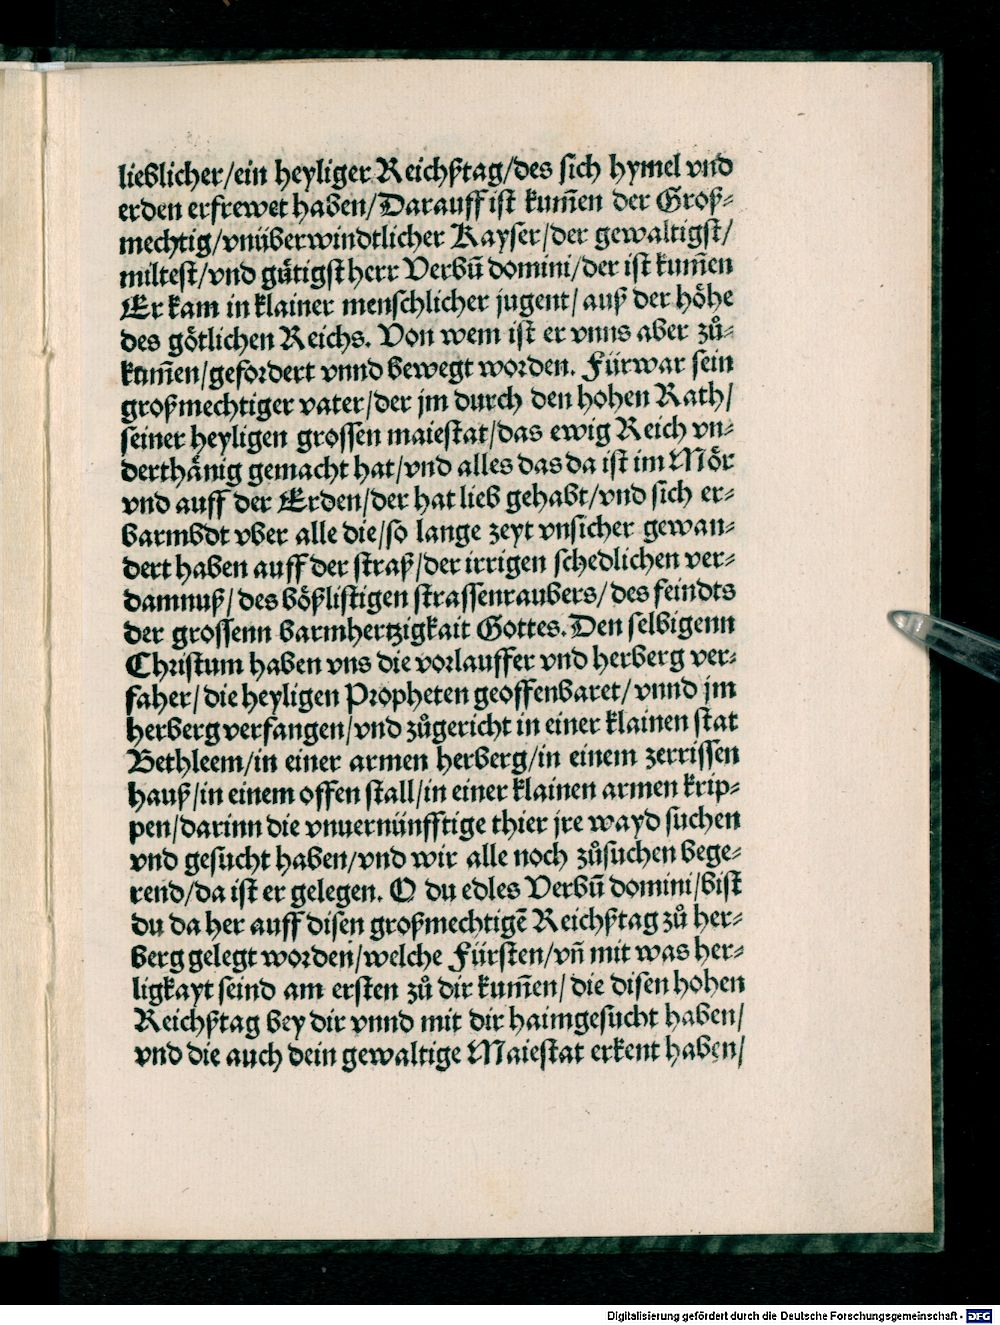 lieblicher/ein heyliger Reichßtag/des sich hymel vnd
erden erfrewet haben/Darauff ist kum̄en der Groß⸗
mechtig/vnüberwindtlicher Kayser/der gewaltigst/
miltest/vnd gütigst herr Verbū domini/der ist kum̄en
Er kam in klainer menschlicher jugent/auß der höhe
des götlichen Reichs. Von wem ist er vnns aber zů⸗
kum̄en/gefordert vnnd bewegt worden. Fürwar sein
großmechtiger vater/der jm durch den hohen Rath/
seiner heyligen grossen maiestat/das ewig Reich vn⸗
derthänig gemacht hat/vnd alles das da ist im Mör
vnd auff der Erden/der hat lieb gehabt/vnd sich er⸗
barmbdt vber alle die/so lange zeyt vnsicher gewan⸗
dert haben auff der straß/der irrigen schedlichen ver⸗
damnuß/des bößlistigen strassenraubers/des feindts
der grossenn barmhertzigkait Gottes. Den selbigenn
Christum haben vns die vorlauffer vnd herberg ver⸗
faher/die heyligen Propheten geoffenbaret/vnnd jm
herberg verfangen/vnd zůgericht in einer klainen stat
Bethleem/in einer armen herberg/in einem zerrissen
hauß/in einem offen stall/in einer klainen armen krip⸗
pen/darinn die vnuernünfftige thier jre wayd suchen
vnd gesucht haben/vnd wir alle noch zůsuchen bege⸗
rend/da ist er gelegen. O du edles Verbū domini/bist
du da her auff disen großmechtigē Reichßtag zů her⸗
berg gelegt worden/welche Fürsten/vn̄ mit was her⸗
ligkayt seind am ersten zů dir kum̄en/die disen hohen
Reichßtag bey dir vnnd mit dir haimgesucht haben/
vnd die auch dein gewaltige Maiestat erkent haben/
Digitalisierung gefördert durch die Deutsche Forschungsgemeinschaft - DFG